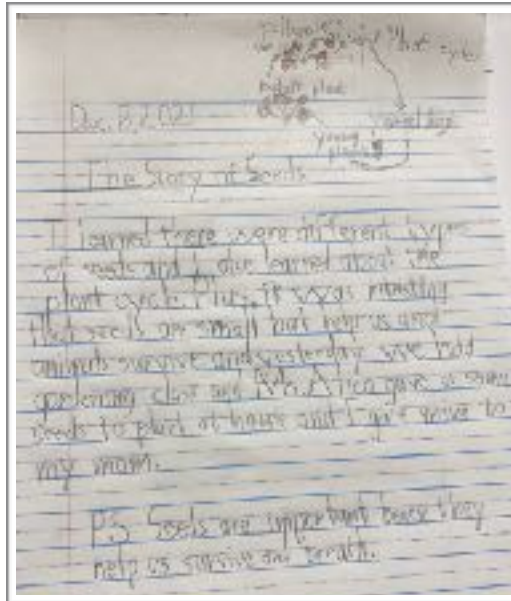 plant cycle
Adult plant
Dec. 8, 2021
young
plant
The Story of Seeds
I learned there were different types
of seeds and I also learned about the
plant cycle. Plus, it was
that seeds are small but help us and
animals survive and yesterday we had
gardening class and Ms. gave us some
seeds to plant at house and I gave mine to
my mom.
P.S Seeds are important they
help us survive and breath.